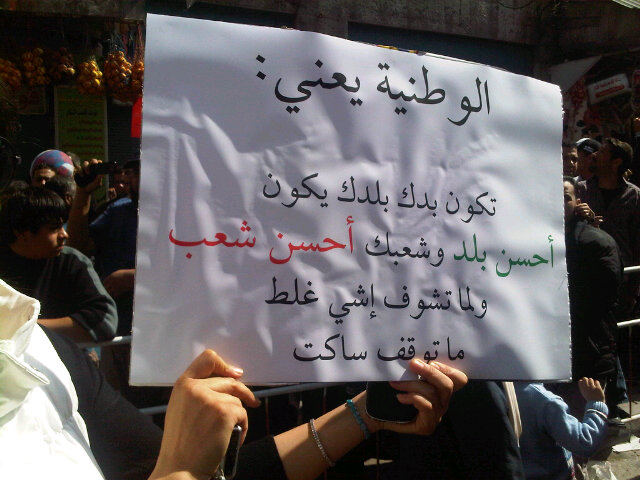 الوطنية يعني:
تكون بدك بلدك يكون
أحسن بلد وشعبك أحسن شعب
ولما تشوف إشي غلط
ما توقف ساكت